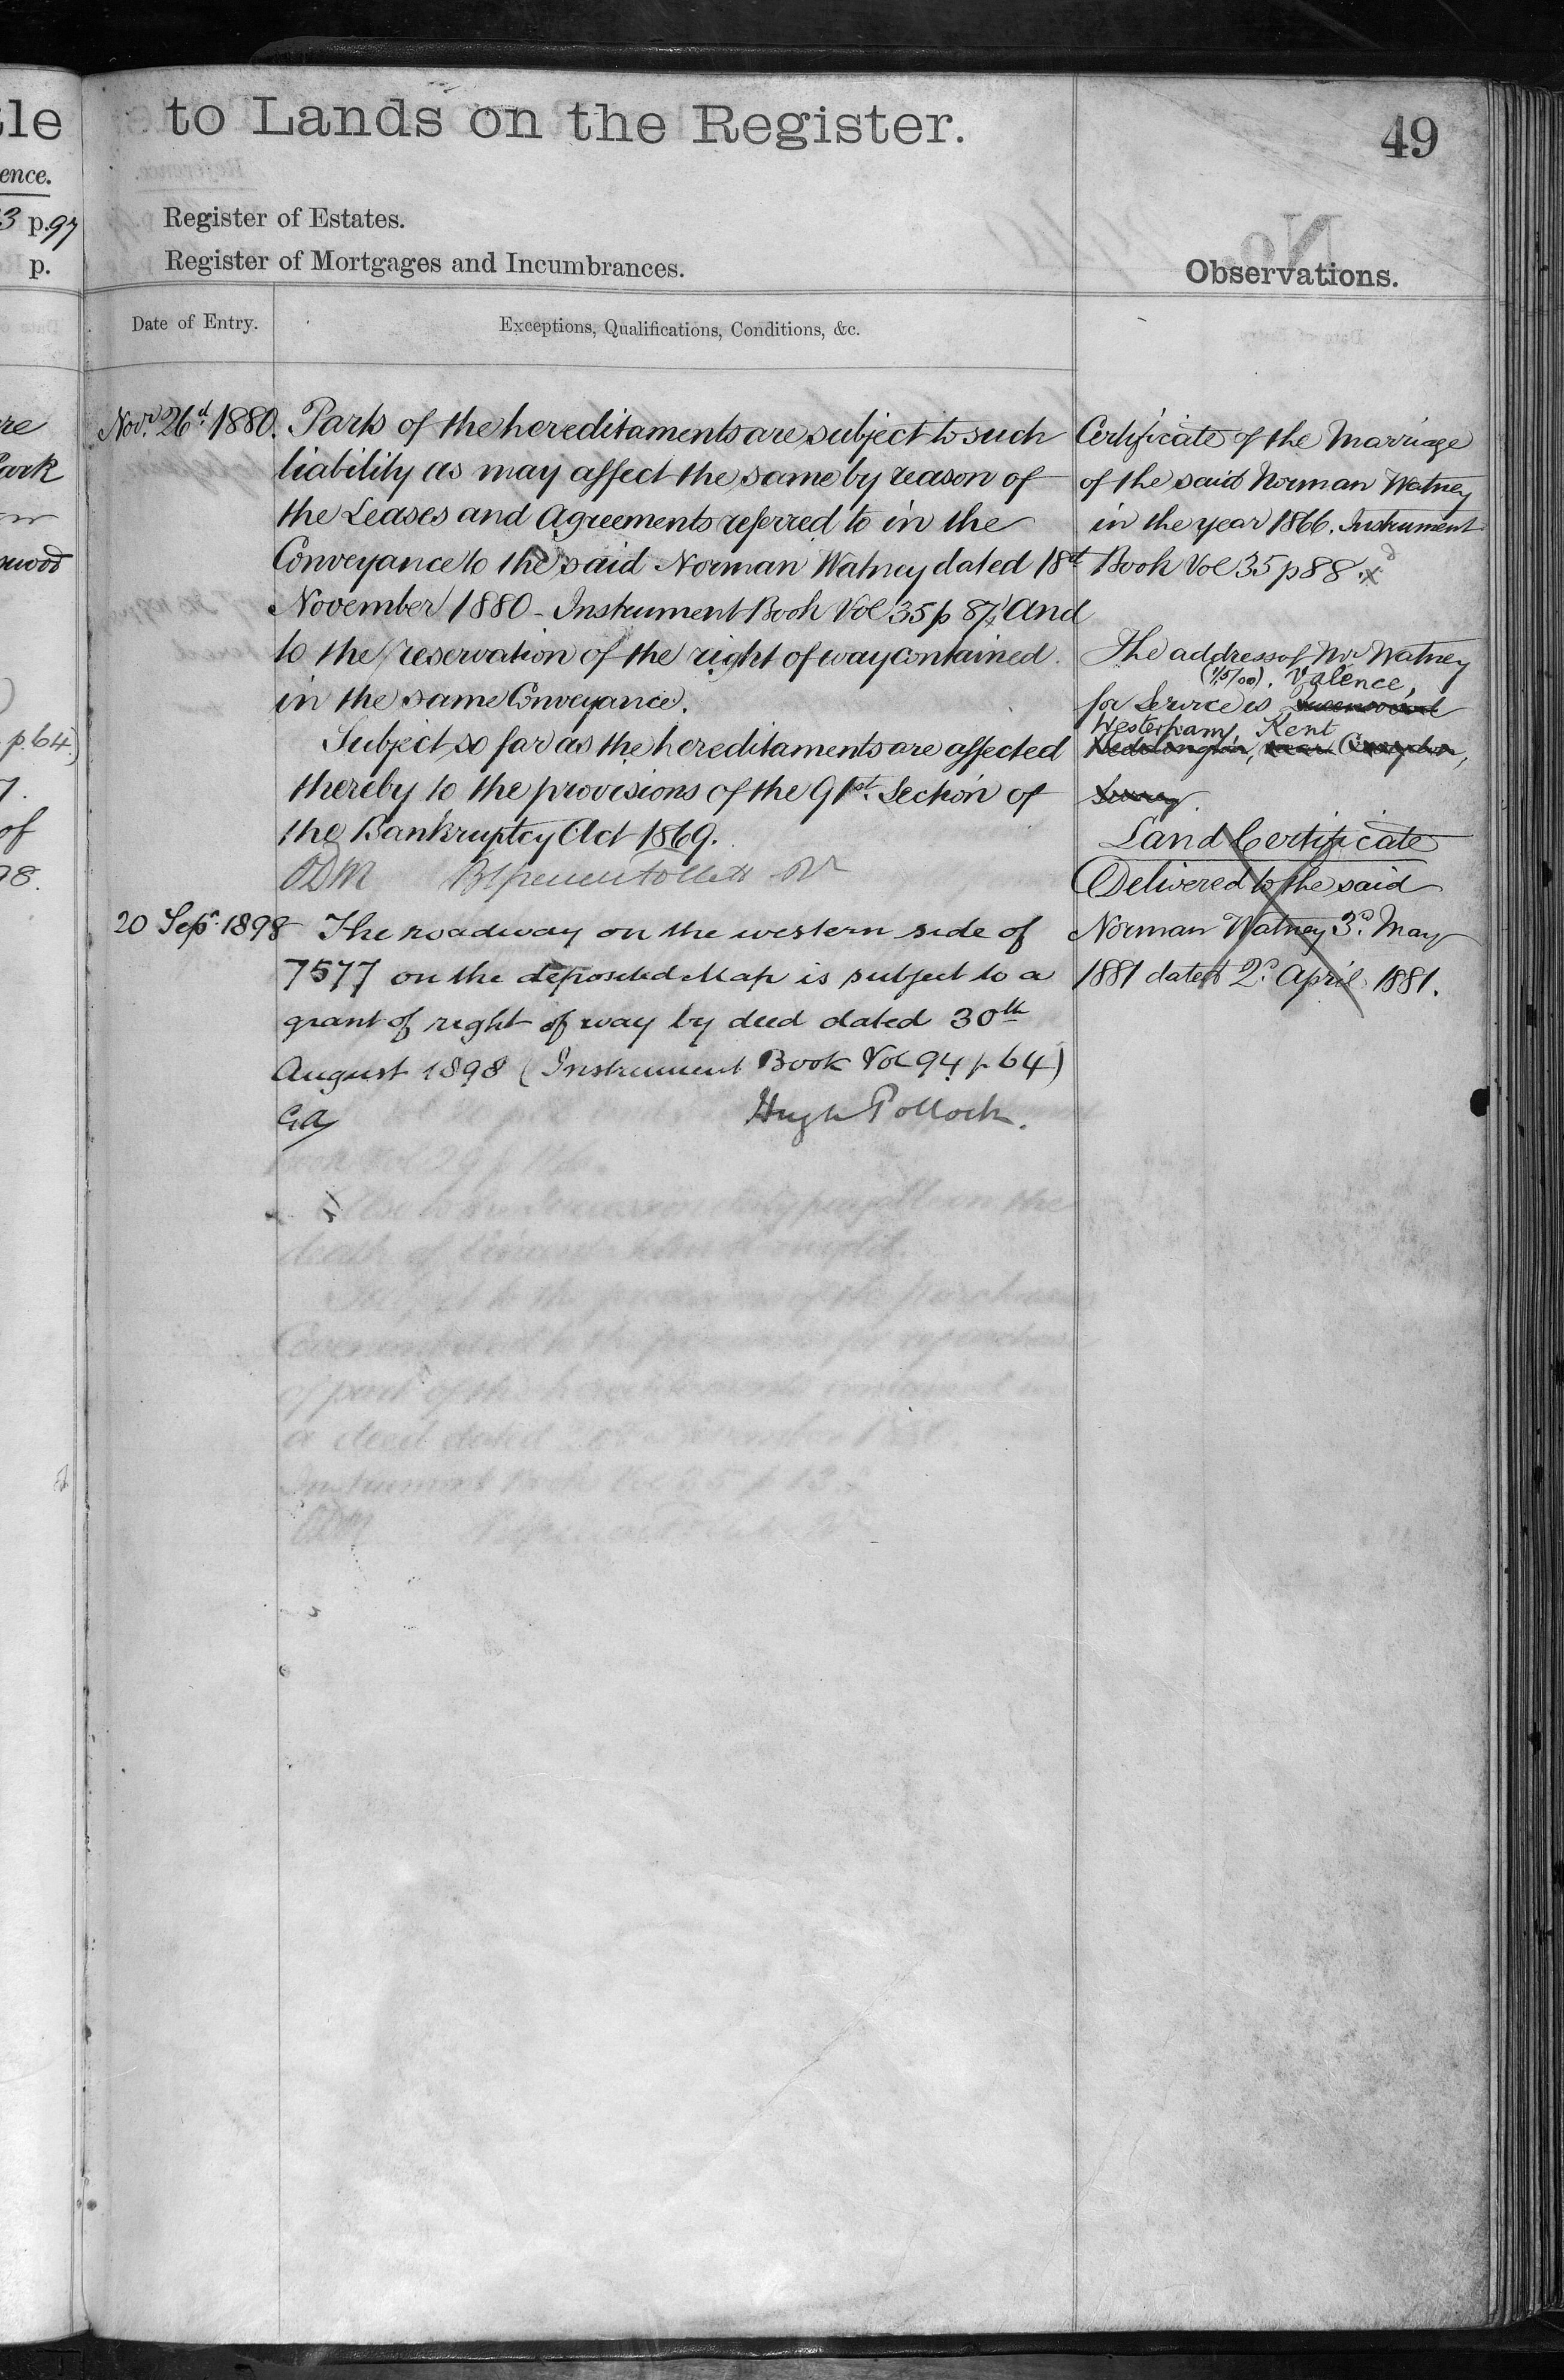 tle
ence.
3 p.97
p.
to Lands on the Register.
49
Register of Estates.
Register of Mortgages and Incumbrances.
Observations.
Date of Entry.
Exceptions, Qualifications, Conditions, &c.
Novr. 26th 1880.
Parts of the hereditaments are subject to such
liability as may affect the same by reason of
the Leases and Agreements referred to in the
Conveyance to the said Norman Watney dated 18th
November 1880 - Instrument Book Vol 35 p 87, And
to the reservation of the right of way contained
in the same Conveyance.
Subject so far as the hereditaments are affected
thereby to the provisions of the 91st. Section of
the Bankruptcy Act 1869.
ODM
20 Sepr. 1898
The roadway on the western side of
7577 on the deposited Map is subject to a
grant of right of way by deed dated 30th
August 1898 (Instrument Book Vol 94 p 64)
Hugh Pollock.
Certificate of the Marriage
of the said Norman Watney
in the year 1866. Instrument
Book Vol 35 p 88.
The address of Mr Watney
Valence,
for Service is
Westerham, Kent
Beddington, near Croydon,
Surrey.
Land Certificate
Delivered to the said
Norman Watney 3d. May
1881 dated 2d. April 1881.
re
Park
wood
p. 64.)
7.
of
98.